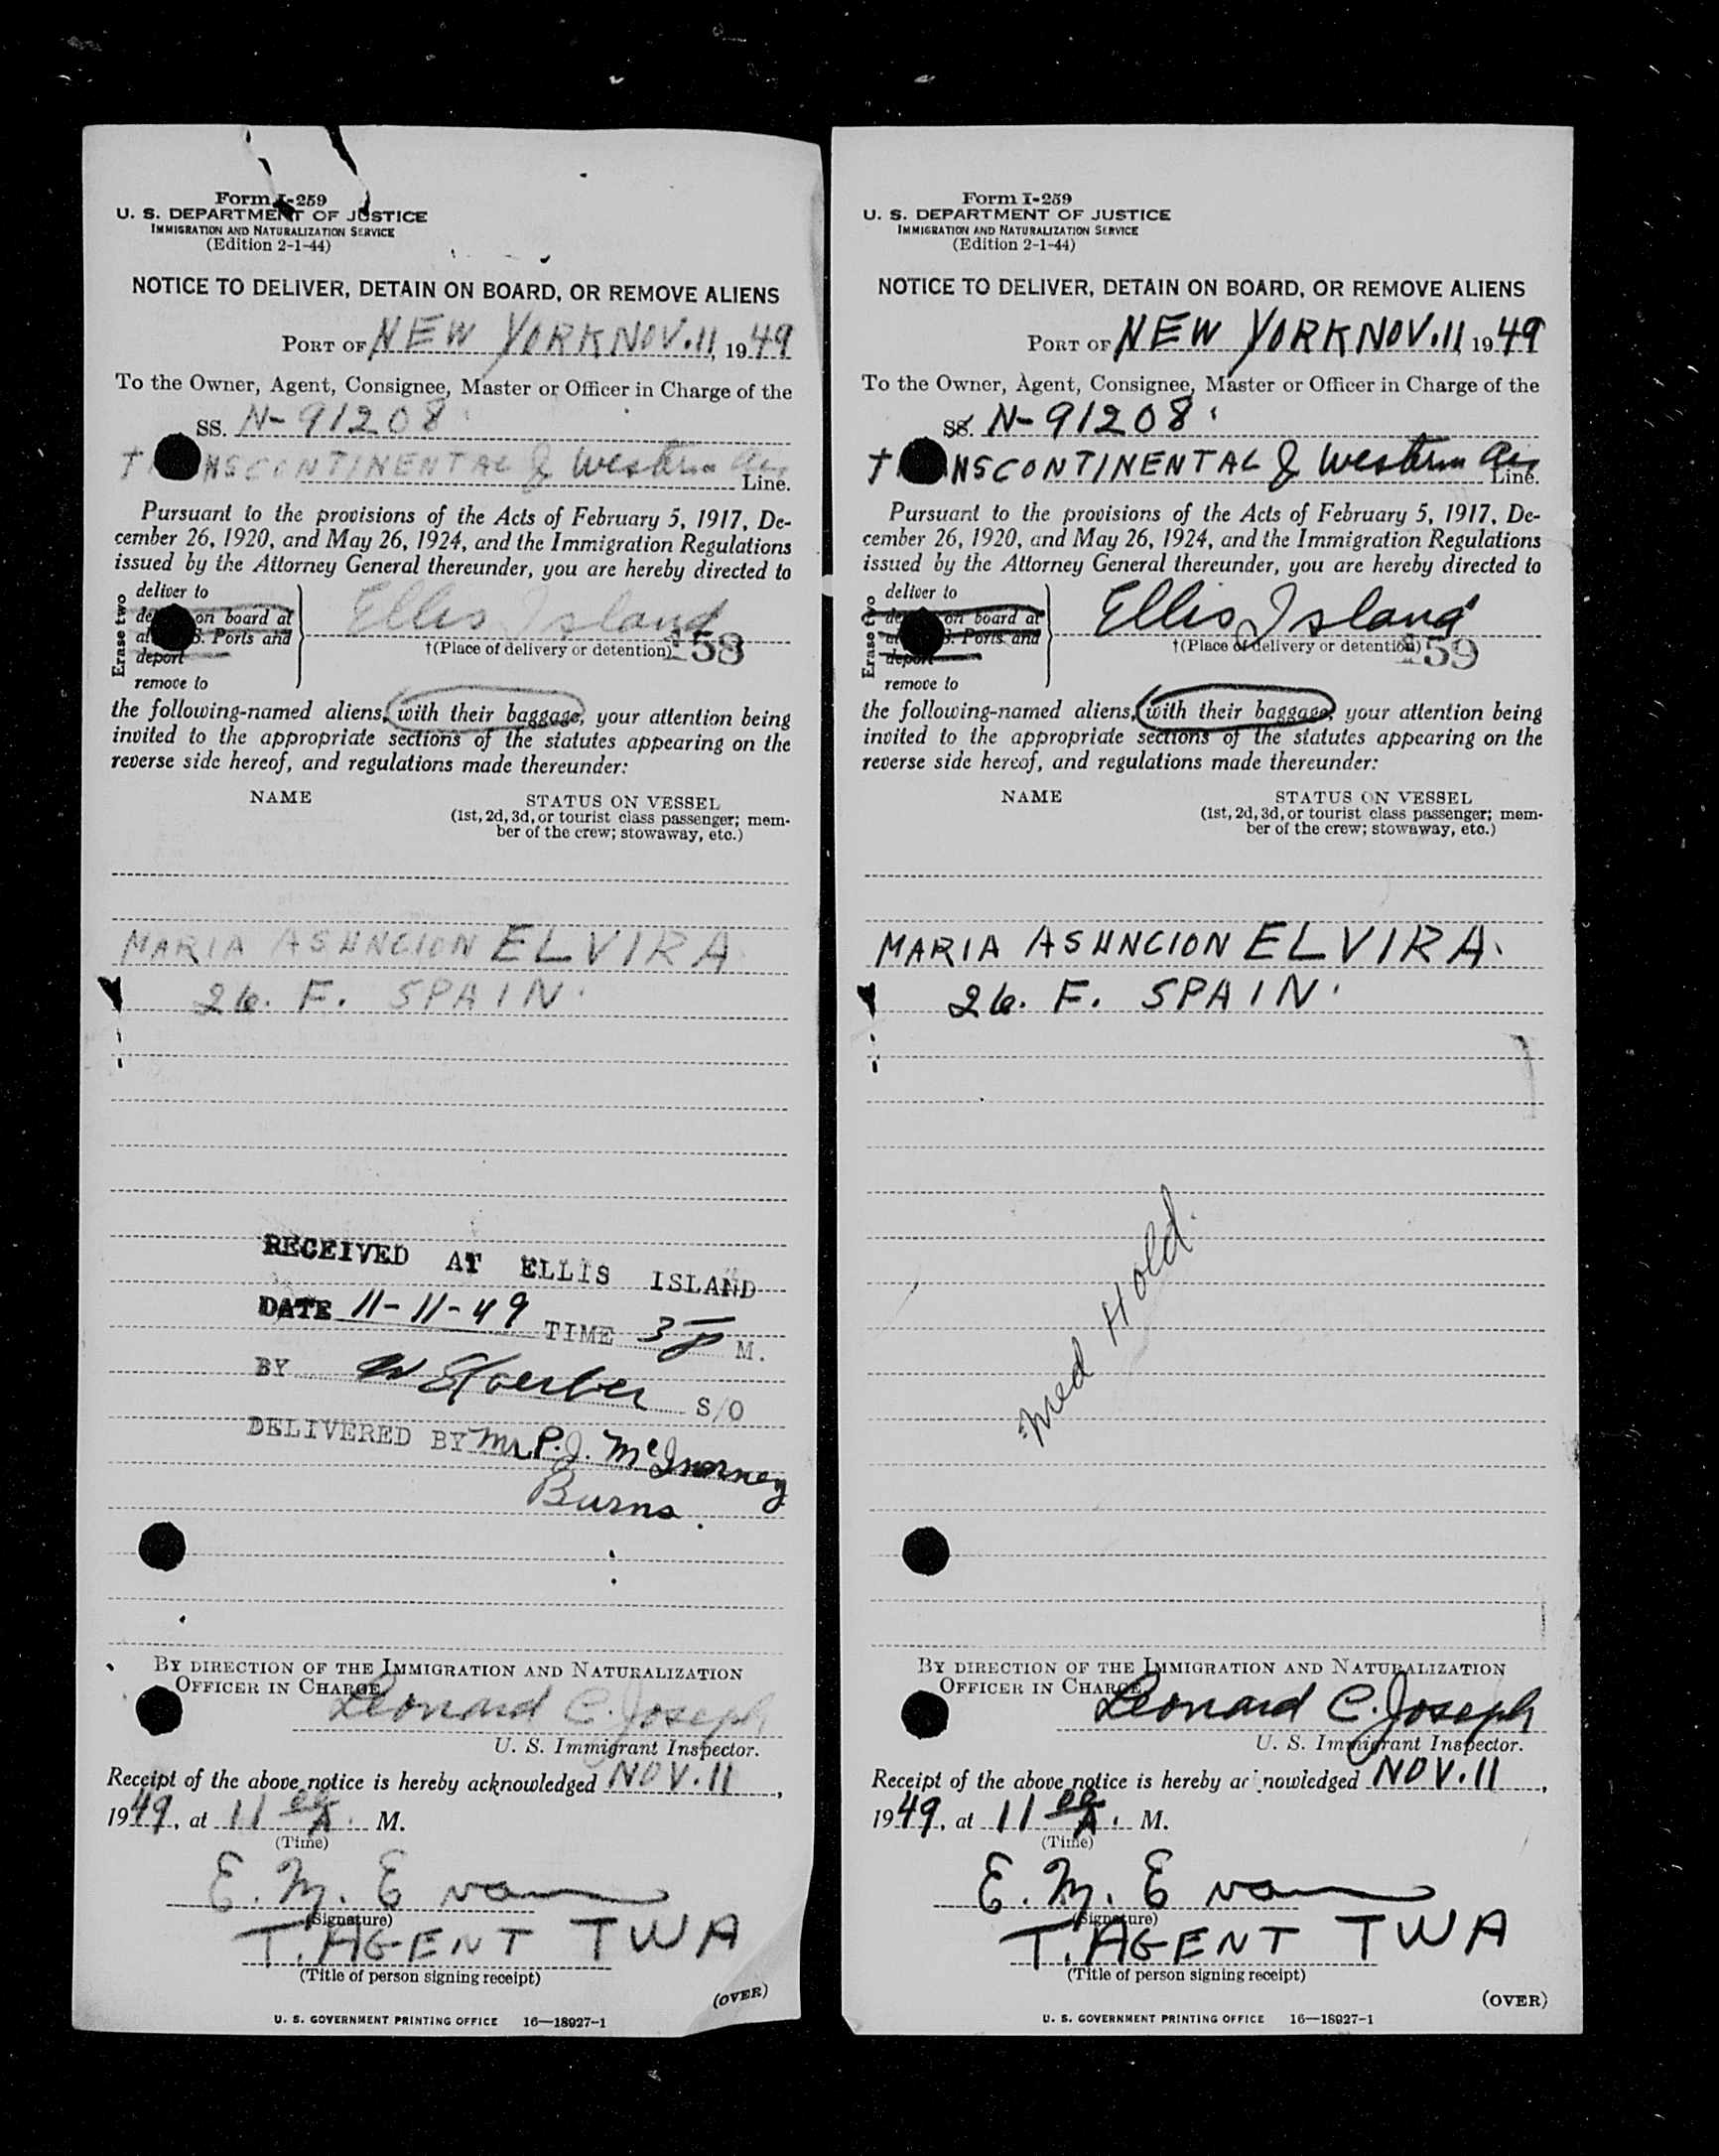 Form I-259
U. S. DEPARTMENT OF JUSTICE
IMMIGRATION AND NATURALIZATION SERVICE
(Edition 2-1-44)
NOTICE TO DELIVER, DETAIN ON BOARD, OR REMOVE ALIENS
PORT OF NEW YORK NOV. 11, 1949
To the Owner, Agent, Consignee, Master or Officer in Charge of the
SS. N-91208
TRANSCONTINENTAL & Western Air Line.
Pursuant to the provisions of the Acts of February 5, 1917, De-
cember 26, 1920, and May 26, 1924, and the Immigration Regulations
issued by the Attorney General thereunder, you are hereby directed to
Erase two
deliver to
on board at
S. Ports and
deport
remove to
Ellis Island
†(Place of delivery or detention)
158
the following-named aliens, with their baggage, your attention being
invited to the appropriate sections of the statutes appearing on the
reverse side hereof, and regulations made thereunder:
NAME
STATUS ON VESSEL
(1st, 2d, 3d, or tourist class passenger; mem-
ber of the crew; stowaway, etc.)
MARIA ASUNCION ELVIRA.
26. F. SPAIN.
RECEIVED AT ELLIS ISLAND
DATE 11-11-49 TIME 3 P M.
BY S/O
DELIVERED BY Mr P. J. McInerney
Burns.
BY DIRECTION OF THE IMMIGRATION AND NATURALIZATION
OFFICER IN CHARGE.
Leonard C. Joseph
U. S. Immigrant Inspector.
Receipt of the above notice is hereby acknowledged NOV. 11,
1949, at 11 00 A. M.
(Time)
E. M. Evans
(Signature)
T. AGENT TWA
(Title of person signing receipt)
(OVER)
U. S. GOVERNMENT PRINTING OFFICE 16—18927-1
Form I-259
U. S. DEPARTMENT OF JUSTICE
IMMIGRATION AND NATURALIZATION SERVICE
(Edition 2-1-44)
NOTICE TO DELIVER, DETAIN ON BOARD, OR REMOVE ALIENS
PORT OF NEW YORK NOV. 11, 1949
To the Owner, Agent, Consignee, Master or Officer in Charge of the
SS. N-91208
TRANSCONTINENTAL & Western Air Line.
Pursuant to the provisions of the Acts of February 5, 1917, De-
cember 26, 1920, and May 26, 1924, and the Immigration Regulations
issued by the Attorney General thereunder, you are hereby directed to
Erase two
deliver to
on board at
S. Ports and
deport
remove to
Ellis Island
†(Place of delivery or detention)
159
the following-named aliens, with their baggage, your attention being
invited to the appropriate sections of the statutes appearing on the
reverse side hereof, and regulations made thereunder:
NAME
STATUS ON VESSEL
(1st, 2d, 3d, or tourist class passenger; mem-
ber of the crew; stowaway, etc.)
MARIA ASUNCION ELVIRA.
26. F. SPAIN.
Med Hold.
BY DIRECTION OF THE IMMIGRATION AND NATURALIZATION
OFFICER IN CHARGE.
Leonard C. Joseph
U. S. Immigrant Inspector.
Receipt of the above notice is hereby acknowledged NOV. 11,
1949, at 11 00 A. M.
(Time)
E. M. Evans
(Signature)
T. AGENT TWA
(Title of person signing receipt)
(OVER)
U. S. GOVERNMENT PRINTING OFFICE 16—18927-1